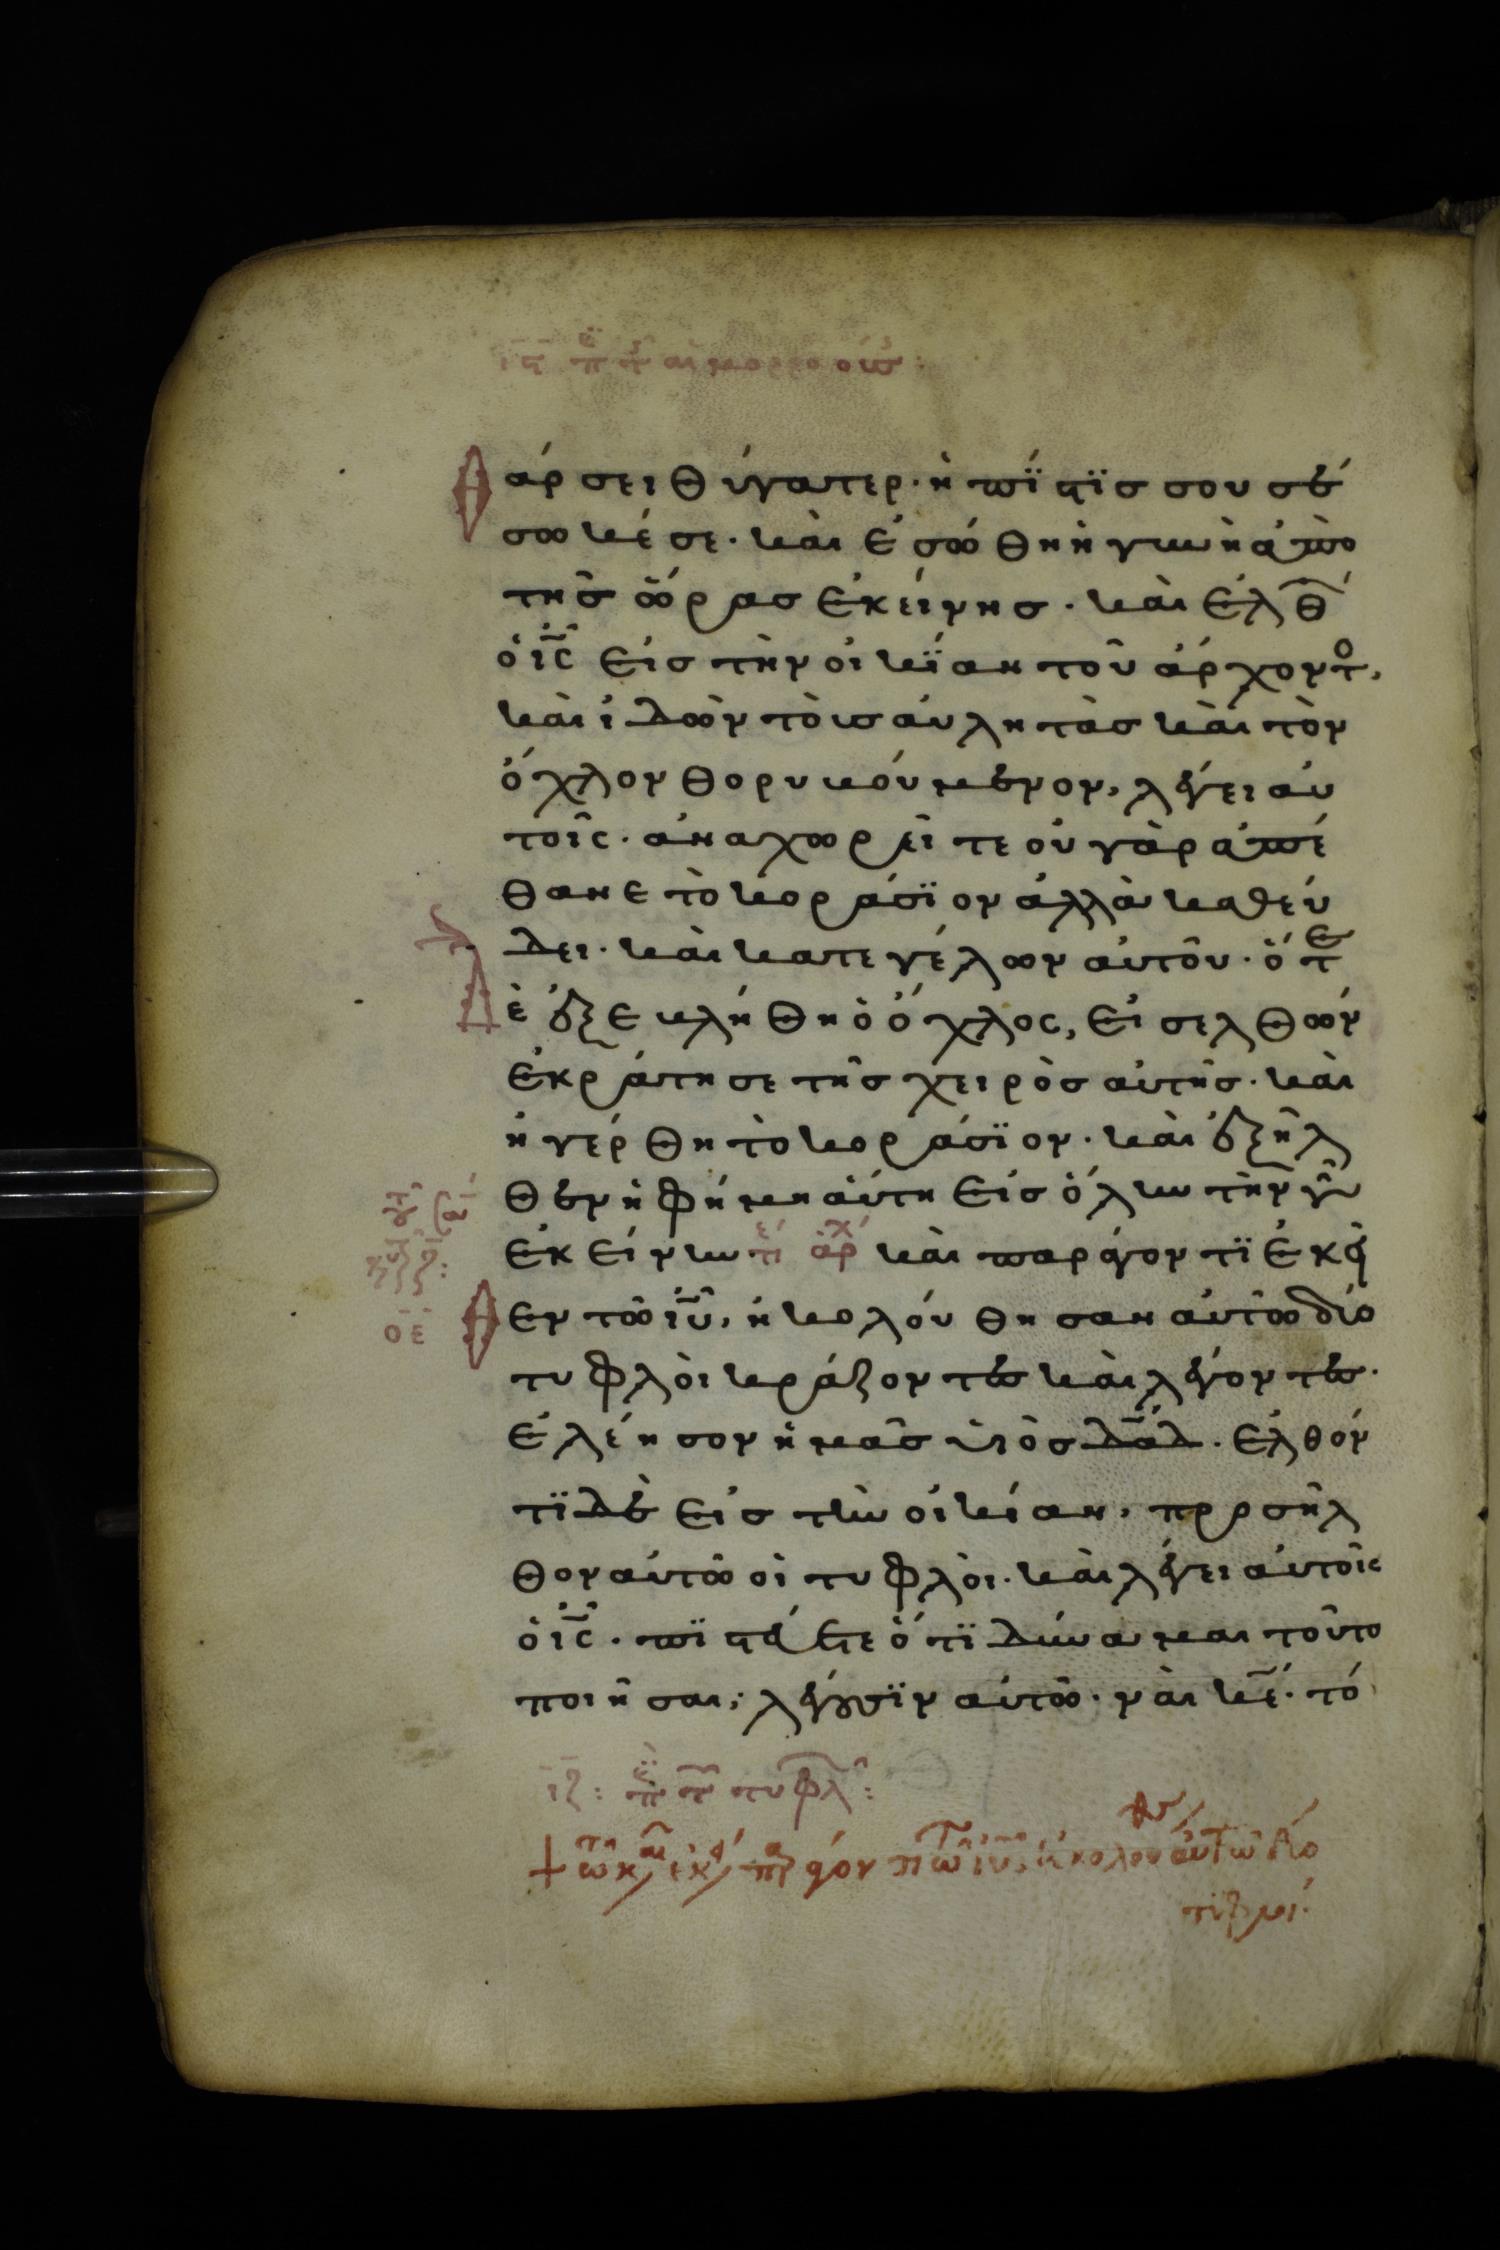 Θάρσει θύγατερ· ἡ πίστϊς σου σέ
σωκέ σε· καὶ ἐσώθη ἡ γυνὴ ἀπὸ
τῆς ὥρας ἐκείνης· καὶ ἐλθ
ὁ ις εἰς τὴν οἰκίαν τοῦ ἄρχοντο,
καὶ ἰδὼν τοὺς αὐλητὰς καὶ τὸν
ὄχλον θορυβούμενον, λέγει αὐ
τοῖς· ἀναχωρεῖτε οὐ γὰρ ἀπέ
θανε τὸ κοράσϊον ἀλλὰ καθεύ
δει· καὶ κατεγέλων αὐτοῦ· ὅτε
Δὲ ἐξεβλήθη ὁ ὄχλος, εἰσελθὼν
ἐκράτησε τῆς χειρὸς αὐτῆς· καὶ
ἠγέρθη τὸ κοράσϊον· καὶ ἐξῆλ
θεν ἡ φήμη αὕτη εἰς ὅλην τὴν γῆν
ἐκείνην τε αρχ καὶ παράγοντϊ ἐκεῖ
οε Θεν τῶ ιυ, ἠκολούθησαν αὐτῶ δύο
τυφλοὶ κράζοντες καὶ λέγοντες·
ἐλέησον ἡμᾶς υἱὸς δαδ· ἐλθόν
τϊ δὲ εἰς τὴν οἰκίαν, προσῆλ
θον αὐτῶ οἱ τυφλοὶ· καὶ λέγει αὐτοῖς
ὁ ις· πϊστεύετε ὅτϊ δύναμαι τοῦτο
ποιῆσαι; λέγουσϊν αὐτῶ· ναὶ κε· τό
ιζ: πε τ τυφλ: